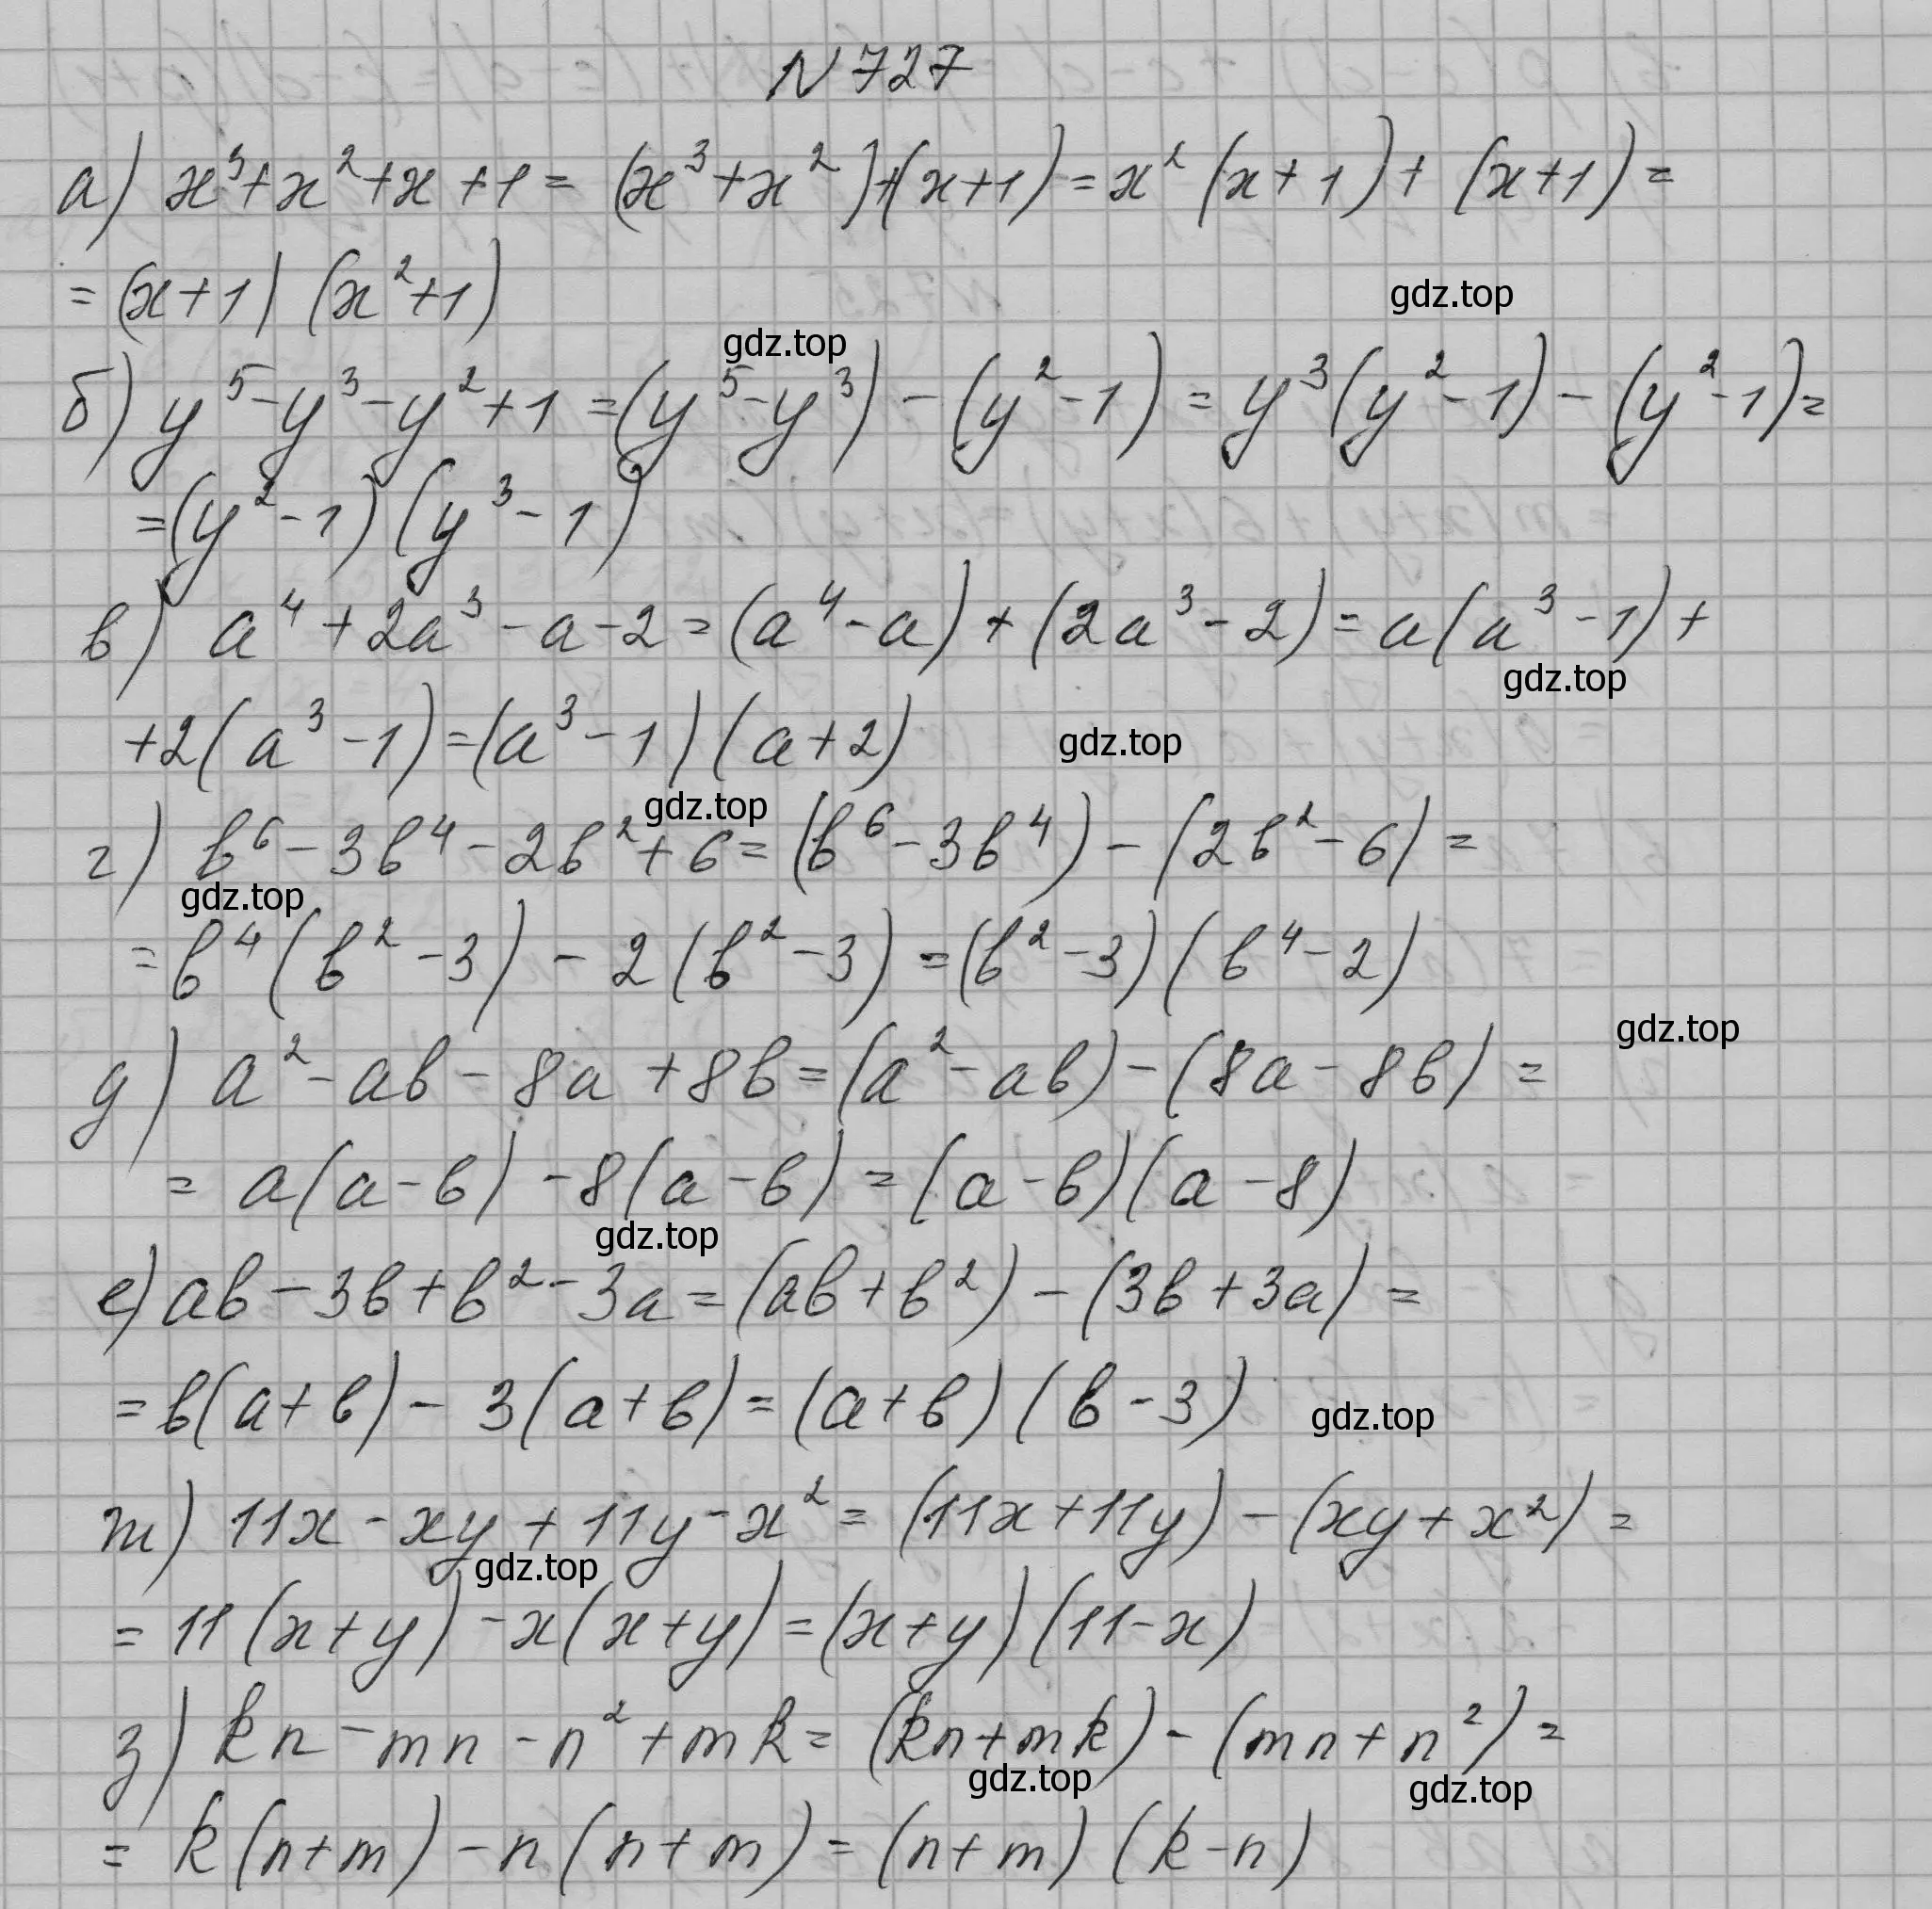 N 727
а) x³+x²+x+1= (x³+x²)+(x+1)=x²(x+1)+ (x+1)=
= (x+1) (x²+1)
gdz.top
gdz.top
б) y⁵-y³-y²+1=(y⁵-y³)-(y²-1)=y³(y²-1)-(y²-1)=
=(y²-1)(y³-1)
в) a⁴+2a³-a-2=(a⁴-a)+(2a³-2)=a(a³-1)+
gdz.top
+2(a³-1)=(a³-1)(a+2)
gdz.top
gdz.top
г) b⁶-3b⁴-2b²+6=(b⁶-3b⁴)-(2b²-6)=
gdz.top
=b⁴(b²-3)-2(b²-3)=(b²-3)(b⁴-2)
gdz.top
д) a²-ab-8a+8b=(a²-ab)-(8a-8b)=
= a(a-b)-8(a-b)=(a-b)(a-8)
gdz.top
е) ab-3b+b²-3a=(ab+b²)-(3b+3a)=
=b(a+b)-3(a+b)=(a+b)(b-3)
gdz.top
ж) 11x-xy+11y-x²=(11x+11y)-(xy+x²)=
gdz.top
= 11(x+y)-x(x+y)=(x+y)(11-x)
з) kn-mn-n²+mk=(kn+mk)-(mn+n²)=
gdz.top
gdz.top
= k(n+m)-n(n+m)=(n+m)(k-n)